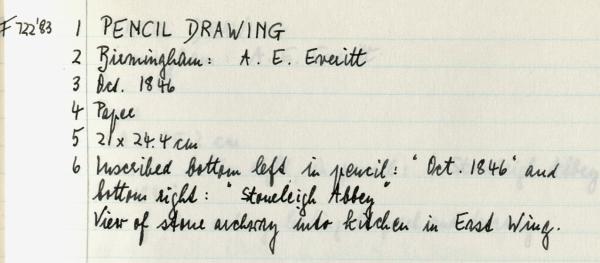 F 722'83 1 PENCIL DRAWING
2 Birmingham: A. E. Everitt
3 Oct. 1846
4 Paper
5 21 x 24.4 cm
6 Inscribed bottom left in pencil: "Oct. 1846" and
bottom right: "Stoneleigh Abbey"
View of stone archway into kitchen in East Wing.